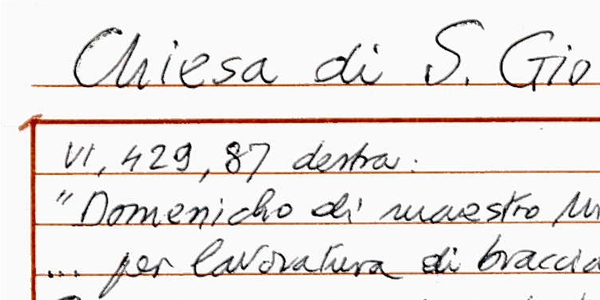 Chiesa di S. Gio
VI, 429, 87 destra:
"Domenicho di maestro
... per lavoratura di braccia